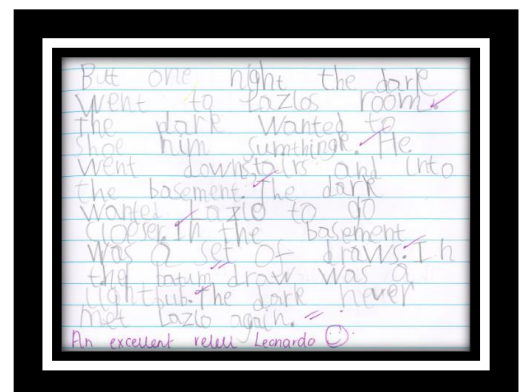 But one night the dark
went to Lazlos room
The dark wanted to
shoe him sumthingk. He
went downstairs and into
the basement. The dark
wanted Lazlo to go
clooser. In the basement
was a set of draws. In
the botum draw was a
light bub. The dark never
met Lazlo again.
An excellent retell Leonardo ☺.